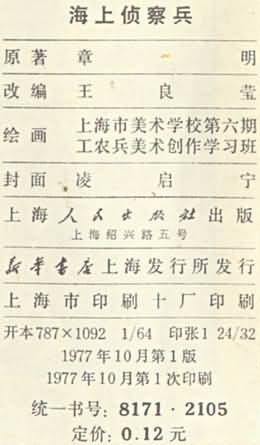 海上侦察兵
原著 章明
改编 王良莹
绘画 上海市美术学校第六期
工农兵美术创作学习班
封面 凌启宁
上海人民出版社出版
上海绍兴路五号
新华书店上海发行所发行
上海市印刷十厂印刷
开本787×1092 1/64 印张1 24/32
1977年10月第1版
1977年10月第1次印刷
统一书号：8171·2105
定价：0.12元